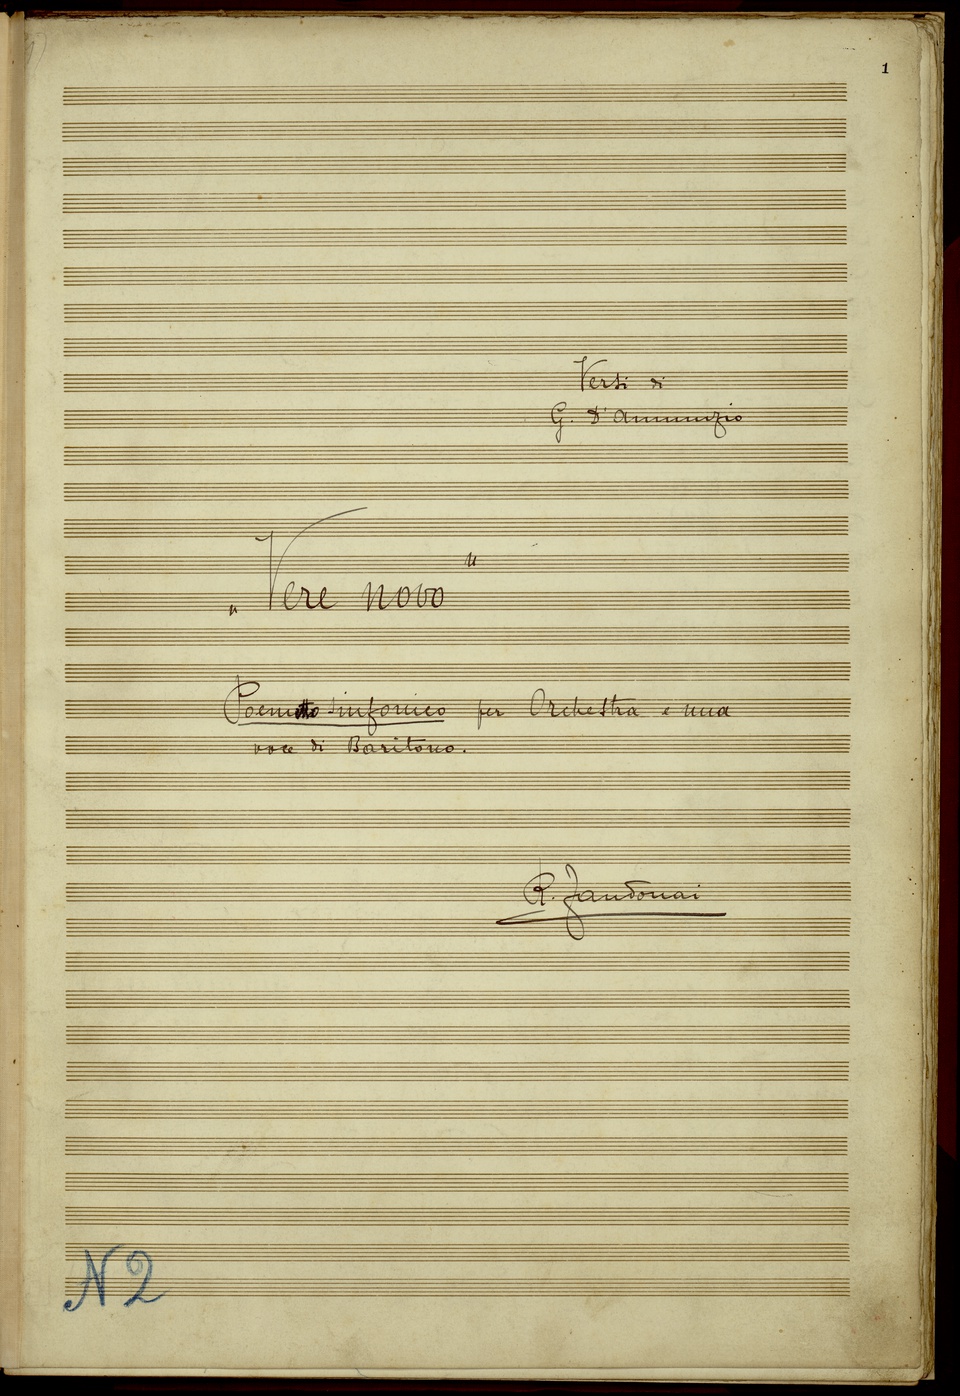 1
Versi di
G. D'Annunzio
„Vere novo"
Poemetto sinfonico per Orchestra e una
voce di Baritono.
R. Zandonai
N 2